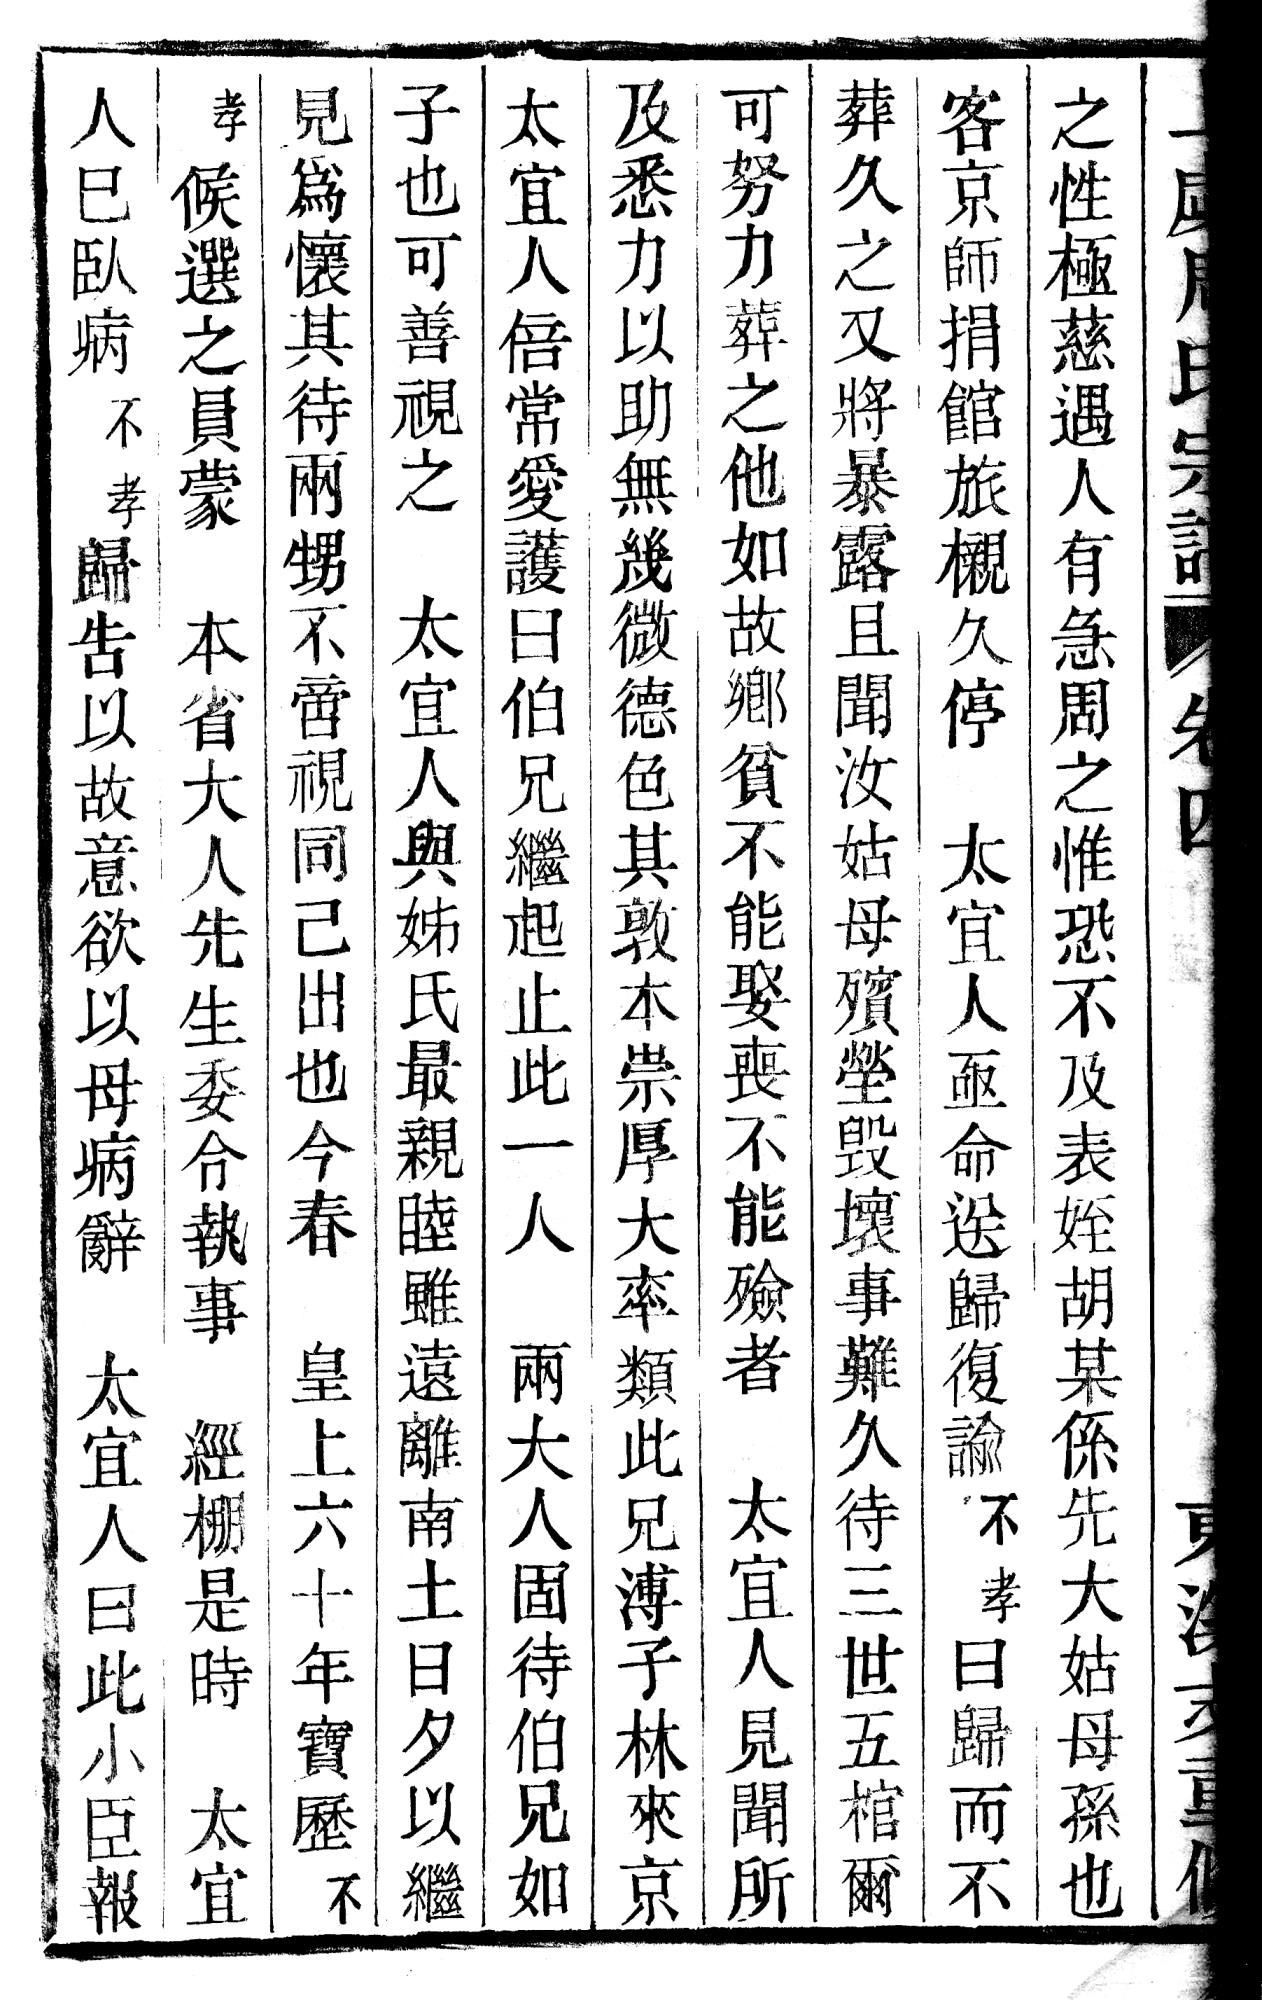 周氏宗譜 卷四
之性極慈遇人有急周之惟恐不及表姪胡某係先大姑母孫也
客京師捐館旅櫬久停　太宜人亟命送歸復諭不孝曰歸而不
葬久之又將暴露且聞汝姑母殯塋毀壞事難久待三世五棺爾
可努力葬之他如故鄉貧不能娶喪不能殮者　太宜人見聞所
及悉力以助無幾微德色其敦本崇厚大率類此兄溥子林來京
太宜人倍常愛護曰伯兄繼起止此一人　兩大人固待伯兄如
子也可善視之　太宜人與姊氏最親睦雖遠離南土日夕以繼
見為懷其待兩甥不啻視同己出也今春　皇上六十年寶歷不
孝候選之員蒙　本省大人先生委合執事　經棚是時　太宜
人巳臥病不孝歸告以故意欲以母病辭　太宜人曰此小臣報